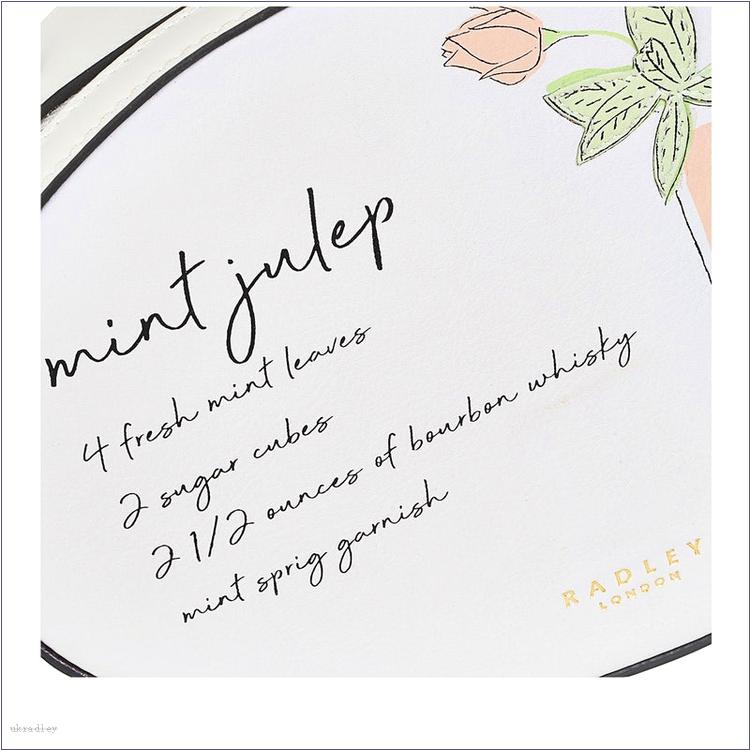 mint julep
4 fresh mint leaves
2 sugar cubes
2 1/2 ounces of bourbon whisky
mint sprig garnish
RADLEY
LONDON
ukradley